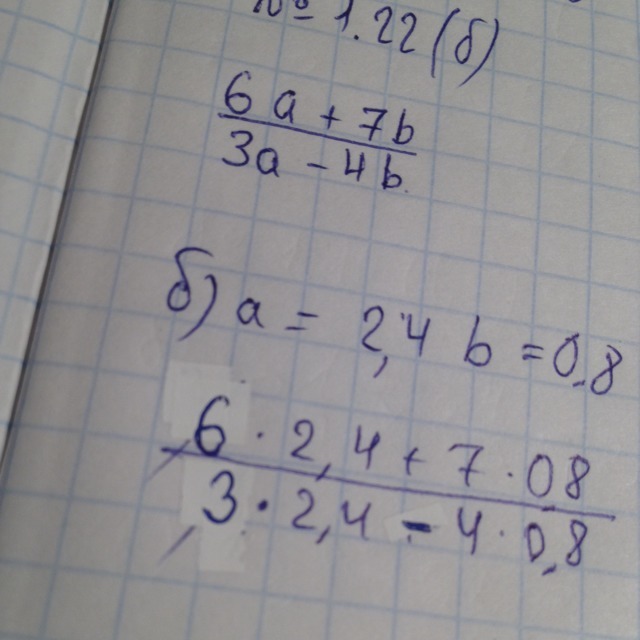 № 1.22 (б)
6a + 7b
3a - 4b
б) a = 2,4 b = 0,8
6 · 2,4 + 7 · 08
3 · 2,4 - 4 · 0,8